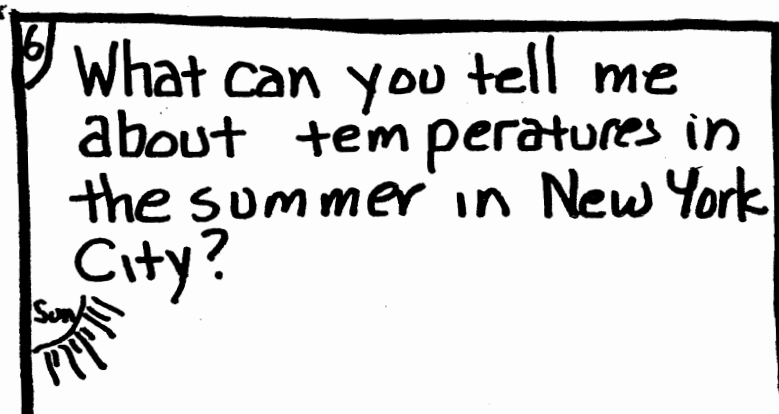 6
What can you tell me
about temperatures in
the summer in New York
City?
Sun